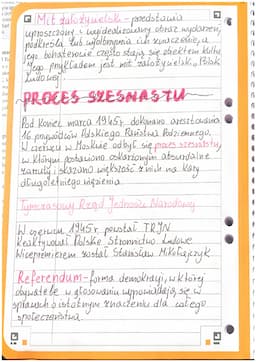 Mit założycielski - przedstawia
uproszczony i wyidealizowany obraz wydarzeń,
podkreśla lub wyolbrzymia ich znaczenie, a
jego bohaterowie często stają się obiektem kultu
Jego przykładem jest mit założycielski Polski
Ludowej.
PROCES SZESNASTU
Pod koniec marca 1945r. dokonano aresztowania
16 przywódców Polskiego Państwa Podziemnego.
W czerwcu w Moskwie odbył się proces szesnastu,
w którym postawiono oskarżonym absurdalne
zarzuty i skazano większość z nich na kary
długoletniego więzienia.
Tymczasowy Rząd Jedności Narodowej
W czerwcu 1945r. powstał TRJN
Reaktywował Polskie Stronnictwo Ludowe
Wicepremierem został Stanisław Mikołajczyk
Referendum - forma demokracji, w której
obywatele w głosowaniu wypowiadają się w
sprawach o istotnym znaczeniu dla całego
społeczeństwa.